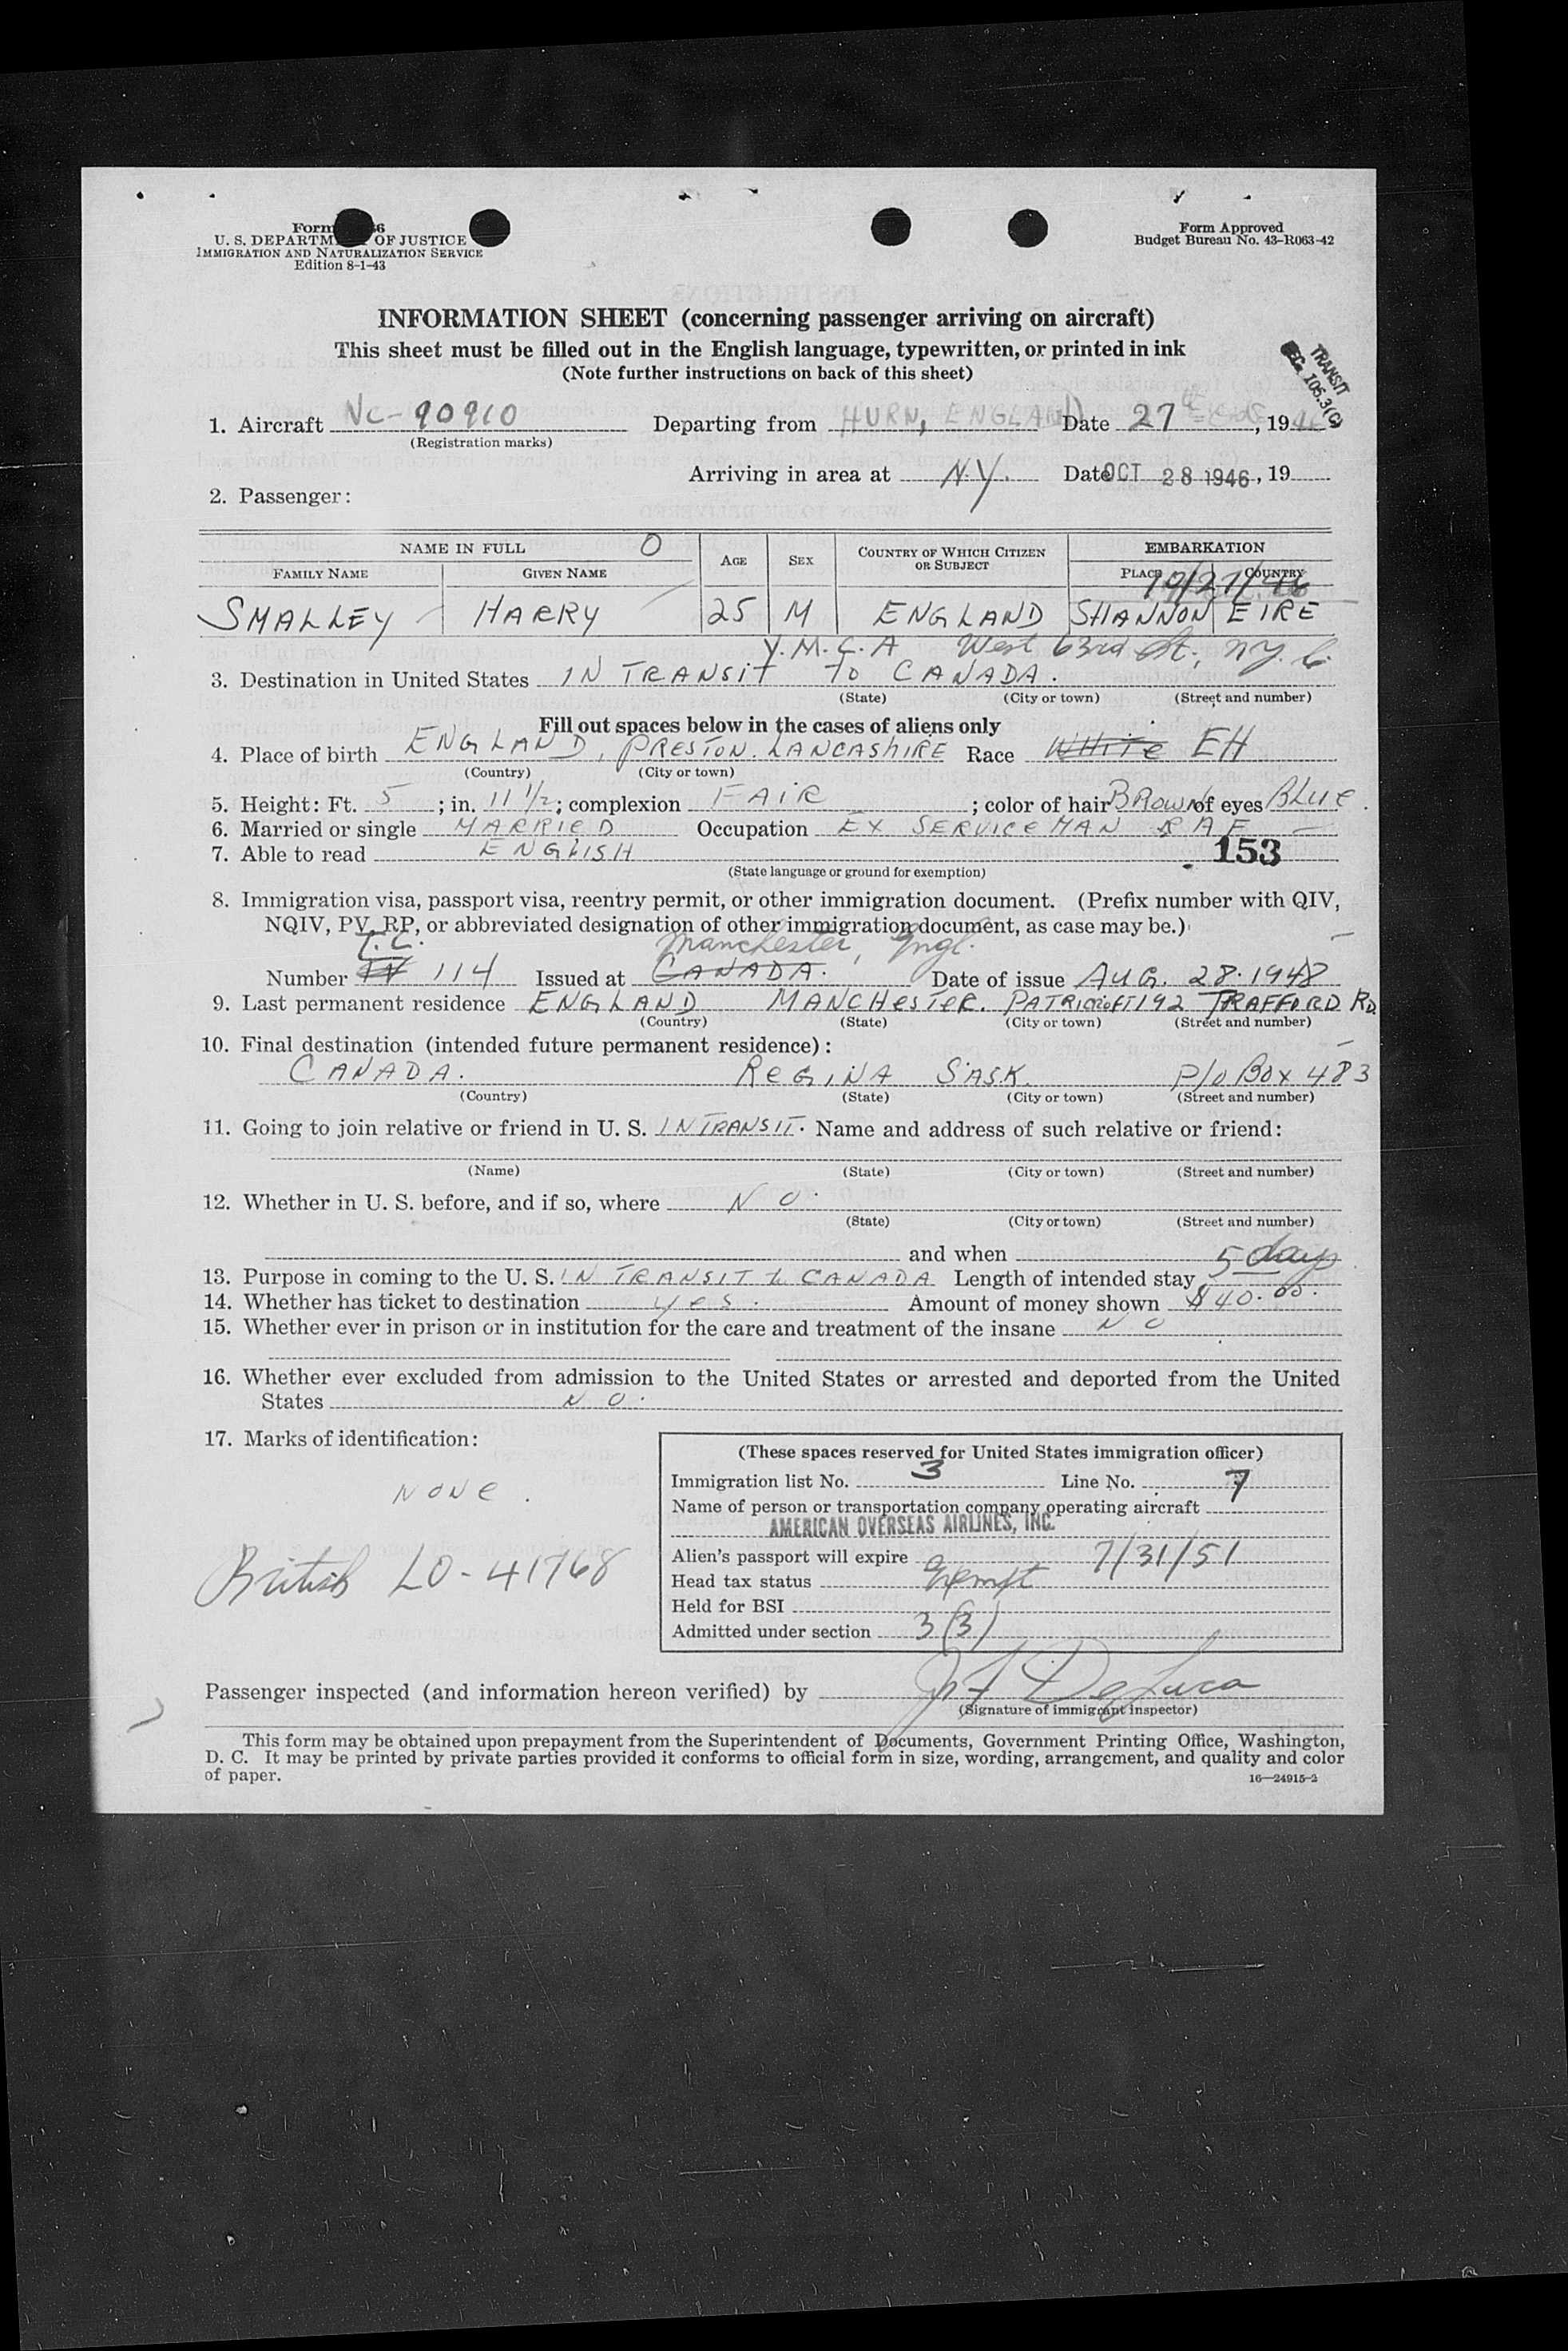 Form 6
U. S. DEPARTM OF JUSTICE
IMMIGRATION AND NATURALIZATION SERVICE
Edition 8-1-43
Form Approved
Budget Bureau No. 43-R063-42
INFORMATION SHEET (concerning passenger arriving on aircraft)
This sheet must be filled out in the English language, typewritten, or printed in ink
(Note further instructions on back of this sheet)
TRANSIT
SEC. 105.3(C)
1. Aircraft NC-90910 Departing from HURN, ENGLAND Date 27 , 1946
(Registration marks)
Arriving in area at N.Y. Date OCT 28 1946, 19
2. Passenger:
NAME IN FULL O AGE SEX COUNTRY OF WHICH CITIZEN OR SUBJECT EMBARKATION
FAMILY NAME GIVEN NAME PLACE COUNTRY
10/27/46
SMALLEY HARRY 25 M ENGLAND SHANNON EIRE
Y.M.C.A West 63rd St., N.Y.C.
3. Destination in United States IN TRANSIT TO CANADA.
(State) (City or town) (Street and number)
Fill out spaces below in the cases of aliens only
4. Place of birth ENGLAND, PRESTON. LANCASHIRE Race White EH
(Country) (City or town)
5. Height: Ft. 5 ; in. 11 1/2; complexion FAIR ; color of hair BROWN of eyes BLUE.
6. Married or single MARRIED Occupation EX SERVICEMAN RAF
7. Able to read ENGLISH 153
(State language or ground for exemption)
8. Immigration visa, passport visa, reentry permit, or other immigration document. (Prefix number with QIV,
NQIV, PV, RP, or abbreviated designation of other immigration document, as case may be.)
T.C. Manchester, Engl.
Number 114 Issued at CANADA. Date of issue AUG. 28. 1948
9. Last permanent residence ENGLAND MANCHESTER. PATRICROFT 192 TRAFFORD RD.
(Country) (State) (City or town) (Street and number)
10. Final destination (intended future permanent residence):
CANADA. REGINA SASK. P/O BOX 483
(Country) (State) (City or town) (Street and number)
11. Going to join relative or friend in U. S. IN TRANSIT. Name and address of such relative or friend:
(Name) (State) (City or town) (Street and number)
12. Whether in U. S. before, and if so, where NO.
(State) (City or town) (Street and number)
and when
13. Purpose in coming to the U. S. IN TRANSIT to CANADA Length of intended stay 5 days
14. Whether has ticket to destination yes. Amount of money shown $40.00.
15. Whether ever in prison or in institution for the care and treatment of the insane NO
16. Whether ever excluded from admission to the United States or arrested and deported from the United
States NO.
17. Marks of identification:
NONE.
British LO-41768
(These spaces reserved for United States immigration officer)
Immigration list No. 3 Line No. 7
Name of person or transportation company operating aircraft
AMERICAN OVERSEAS AIRLINES, INC.
Alien's passport will expire 7/31/51
Head tax status Exempt
Held for BSI
Admitted under section 3(3)
Passenger inspected (and information hereon verified) by DeLuca
(Signature of immigrant inspector)
This form may be obtained upon prepayment from the Superintendent of Documents, Government Printing Office, Washington,
D. C. It may be printed by private parties provided it conforms to official form in size, wording, arrangement, and quality and color
of paper.
16—24915-2